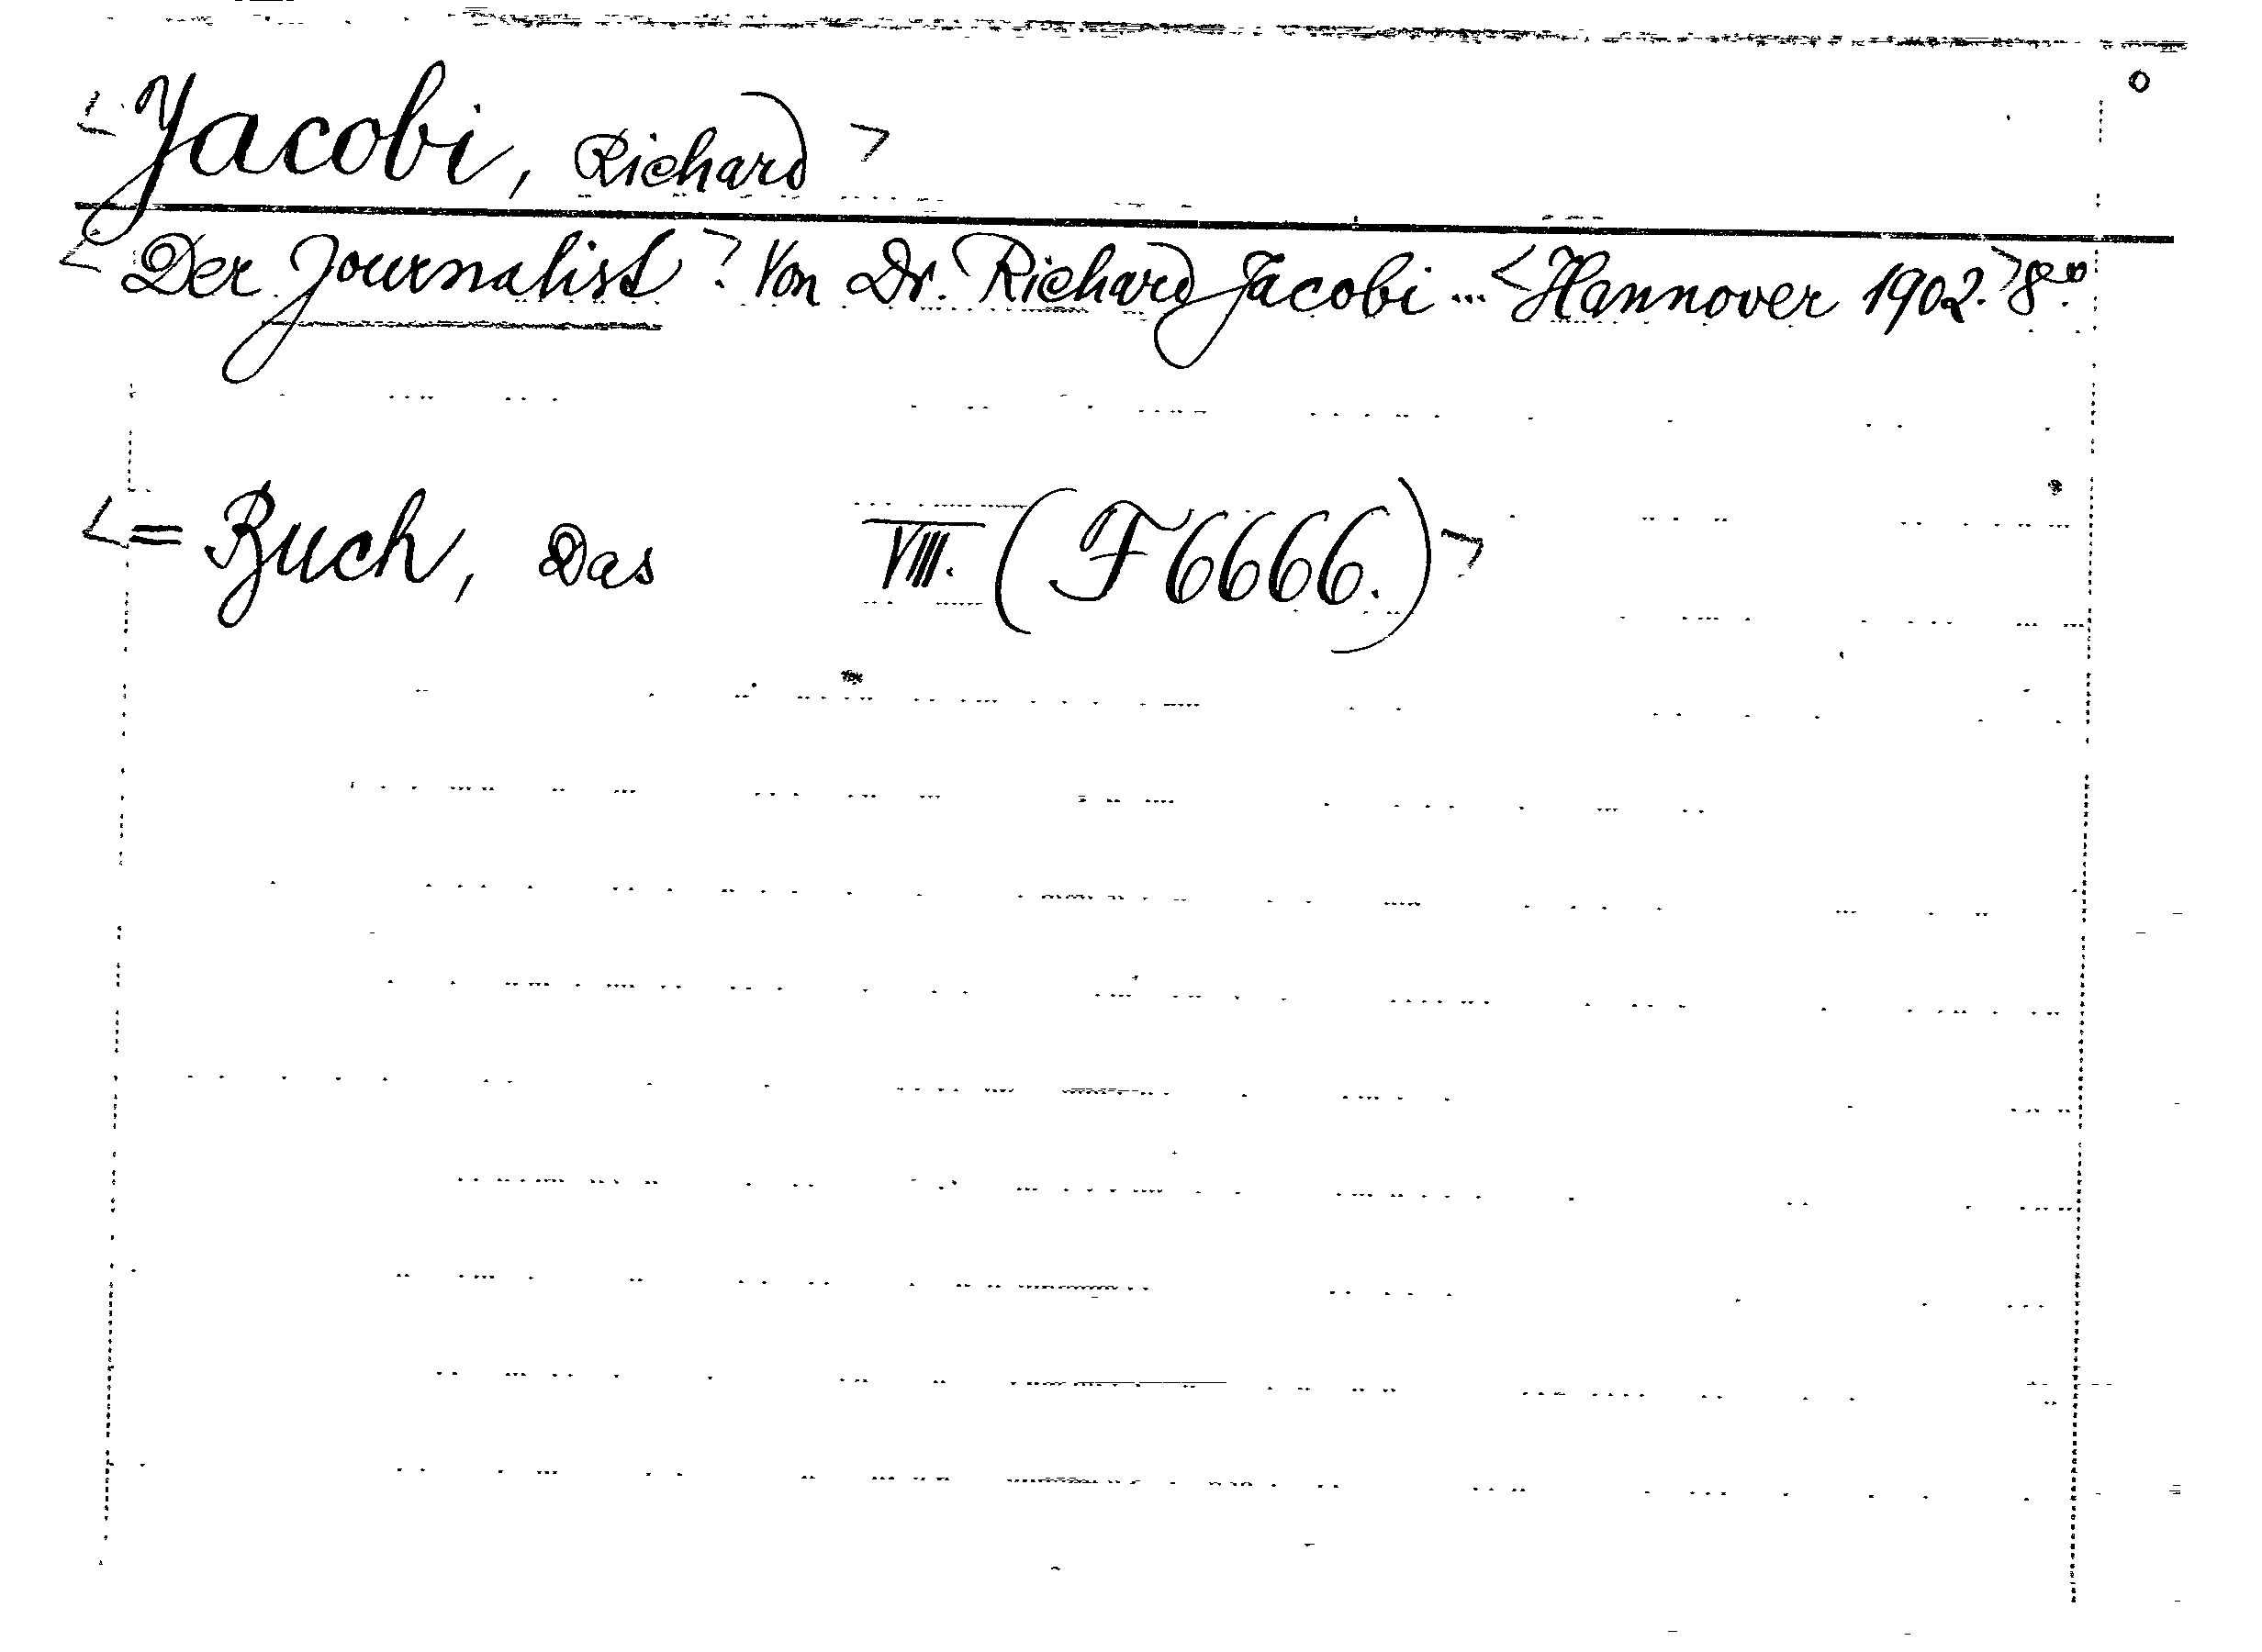 <Jacobi, Richard>
<Der Journalist> Von Dr. Richard Jacobi... <Hannover 1902.> 8°.
<= Buch, Das VIII. (F 6666.)>